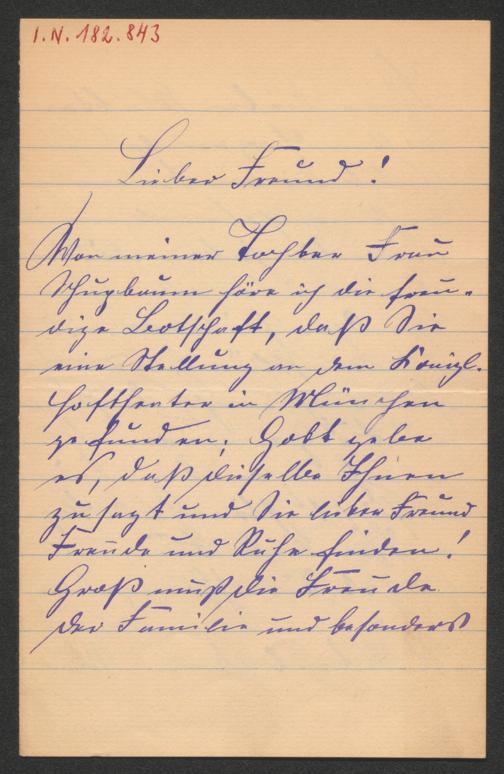 I.N. 182.843
Lieber Freund!
Von meiner Tochter Frau
höre ich die freu-
dige Botschaft, daß Sie
eine Stellung an dem Königl.
Hoftheater in München
gefunden; Gott gebe
es, daß dieselbe Ihnen
zusagt und Sie lieber Freund
Freude und Ruhe finden!
Groß muß die Freude
der Familie und besonders